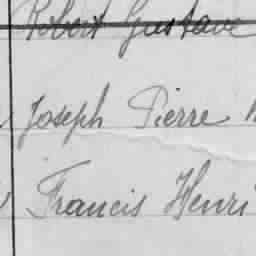 Robert Gustave
Joseph Pierre
Francis Henri